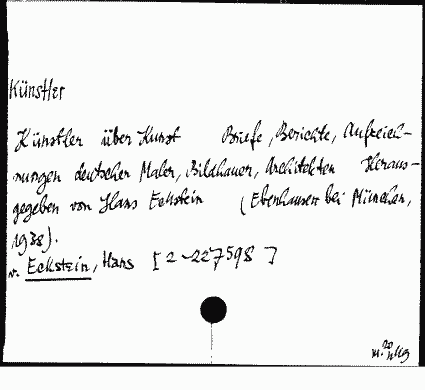 Künstler
Künstler über Kunst Briefe, Berichte, Aufzeich-
nungen deutscher Maler, Bildhauer, Architekten Heraus-
gegeben von Hans Eckstein (Ebenhausen bei München,
1938).
v. Eckstein, Hans [2-227598]